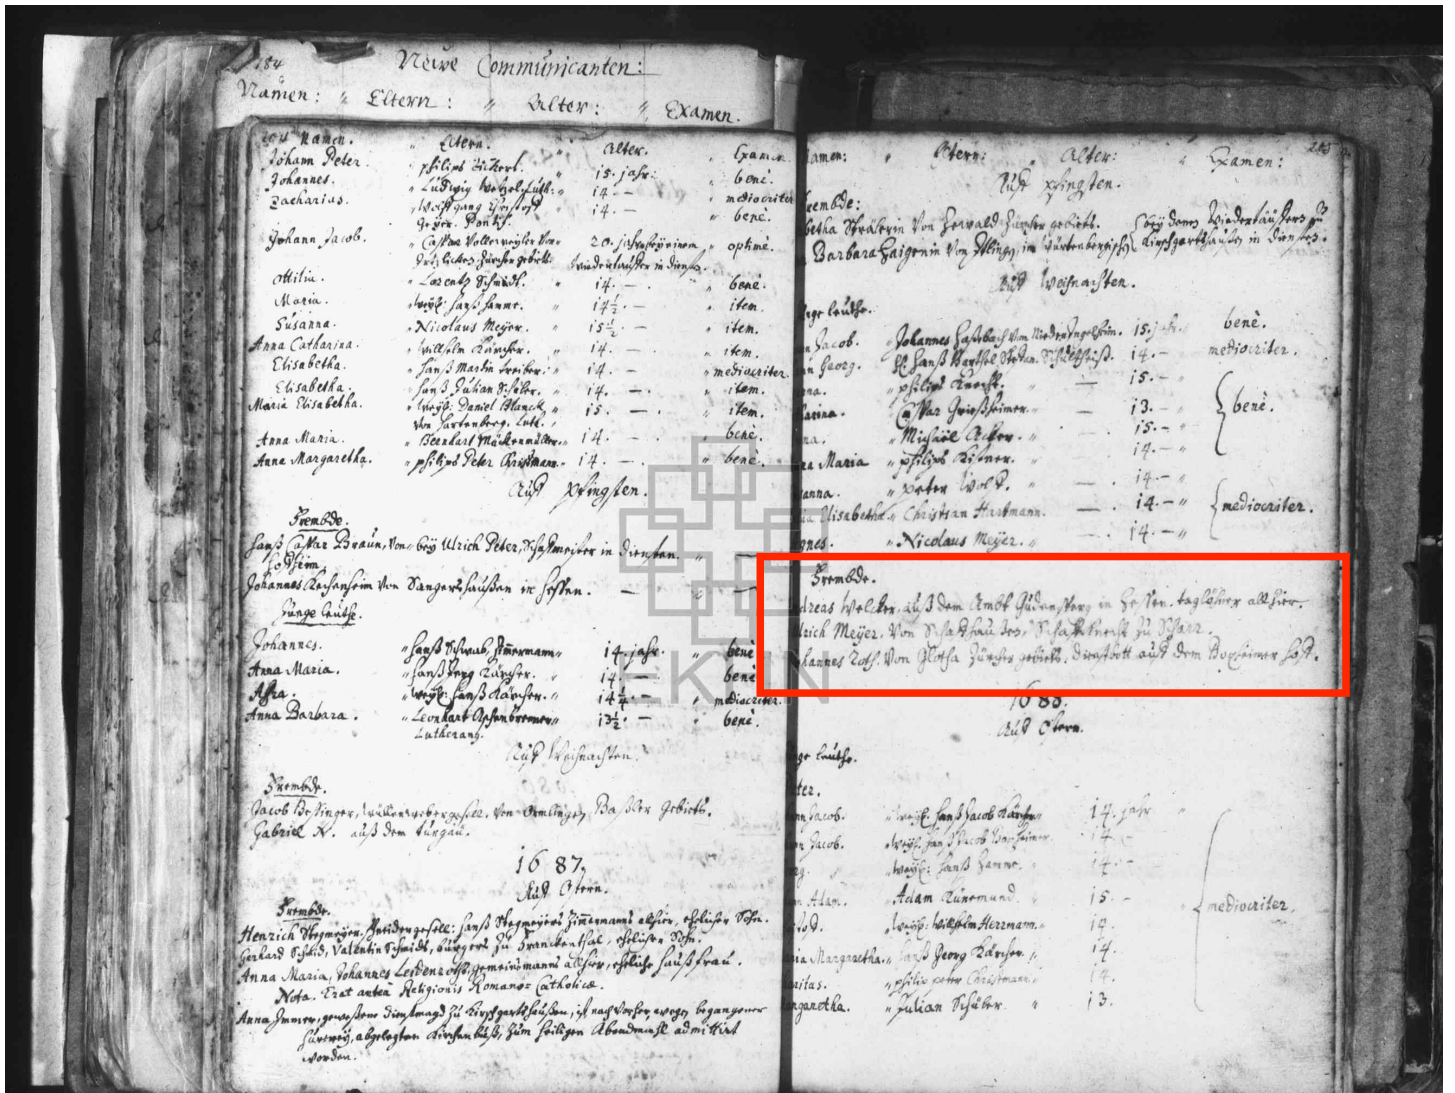 184 Neuwe Communicanten:
Namen: " Eltern: " Alter: " Examen.
184 Namen. " Eltern. " Alter. " Examen
Johann Peter. " philips 15. jahr: " benè.
Johannes. " Ludwig Wetzel. Luth: " 14 — " mediocriter
Zacharias. " Wolfgang 14. — " benè.
Johann Jacob. " Caspar Vollenweyder Von 20. jahr bey einem " optimè.
Zürcher gebiet. Wiedertäuffer in diensten.
Ottilia. " Lorentz Schmidt. " 14. — . " benè.
Maria. " weyl: Hanß Hamme. " 14½ — . " item.
Susanna. " Nicolaus Meyer. " 15½ — . " item.
Anna Catharina. " Wilhelm Kärcher. " 14. — . " item.
Elisabetha. " Hanß Martin Treiber. " 14. — " mediocriter.
Elisabetha. " Hanß Julian Schüber. " 14. — . " item.
Maria Elisabetha. " weyl: Daniel Blanck " 15. — . " item.
von Hartenberg. Luth.
Anna Maria. " Bernhart Mückenmüller " 14. — . " benè.
Anna Margaretha. " philips Peter Christmann " 14. — . " benè.
Auff pfingsten.
Frembde.
Hanß Caspar Braun, Von " bey Ulrich Peter, Schaffmeister in diensten. "
Johannes Von Sangershaußen in Hessen. —
Junge leuthe.
Johannes. " Hanß Schwab, Zimmermann " 14. jahr. " benè
Anna Maria. " Hanß Jerg Kärcher. " 14. — " benè
Afra. " weyl: Hanß Kärcher. " 14¼ — " mediocriter.
Anna Barbara. " Leonhart Aschenbremer " 13½. — " benè.
Lutheranq.
Auff Weihnachten.
Frembde.
Jacob Bessinger, Von Ormlingen, Baßler Gebiets.
Gabriel N. auß dem Turgäu.
1687.
Auff Ostern.
Frembde.
Henrich Stegmeyer. Hanß Stegmeyers Zimmermanns allhier, ehelicher Sohn.
Gerhard Schmid, Valentin Schmidts, bürgers zu Franckenthal, ehelicher Sohn.
Anna Maria, Johannes Leydenroths, gemeinsmanns allhier, eheliche haußfrau.
Nota. Erat anteà Religionis Romano-Catholicæ.
Anna Immer, gewesene dienstmagd zu Kirschgartshaußen, ist nach vorher wegen begangener
hurerey, abgelegter Kirchenbuß, zum heiligen Abendmahl admittirt
worden.
Namen: " Eltern: " Alter: " Examen: 185
Auff pfingsten.
Frembde:
betha Strälerin Von Zürcher gebiets. bey denen Wiedertäuffern zu
Barbara Von im Würtenbergischen Kirschgartshaußen in diensten.
Auff Weihnachten.
nge leuthe.
n Jacob. " Johannes Haßebach von Niederingelheim. 15. jahr " benè.
n Georg. " H. Hanß Barthel Schultheiß. 14. — " mediocriter.
na. " philips Knecht. — 15. — "
arina. " Caspar Grießheimer. " 13. — " benè.
na. " Michäel Acker. " 15. — "
na Maria " philips Kistner. 14. — "
anna. " peter Wolf. " — . 14. — "
na Elisabetha. " Christian Hartmann. — . 14. — " mediocriter.
gnes. " Nicolaus Meyer. " — . 14. — "
Frembde.
dreas Welcker, auß dem Ambt Gudensperg in Hessen. taglöhner allhier.
lrich Meyer. Von Schaffhaußen, Schaffknecht zu Scharr.
hannes Roth. Von Zürcher gebiets. Dienstbott auff dem Boxheimer hoff.
1688.
Auff Ostern.
nge leuthe.
ter.
nn Jacob. " weyl. Hanß Jacob Kärcher 14. jahr "
nn Jacob. " weyl. Hanß Jacob 14 —
rg. " " weyl: Hanß Hamme. " 14. —
n Adam. Adam Künemund. " 15. — " mediocriter.
" weyl: Wilhelm Herrmann. " 14.
ria Margaretha. " Hanß Georg Kärcher. " 14.
aritas. " philix peter Christmann. " 14.
argaretha. " Julian Schüber " 13.
EKHN